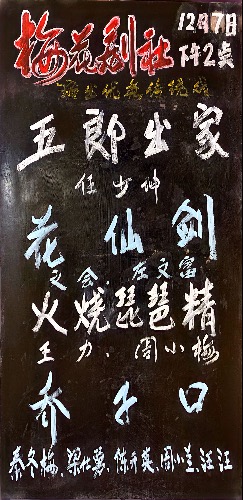 梅花剧社 12月7日
下午2点
五郎出家
任少坤
花仙剑
又会左文富
火烧琵琶精
王力、周小梅
乔子口
秦冬梅、梁仕慧、陈开英、周小兰、汪江